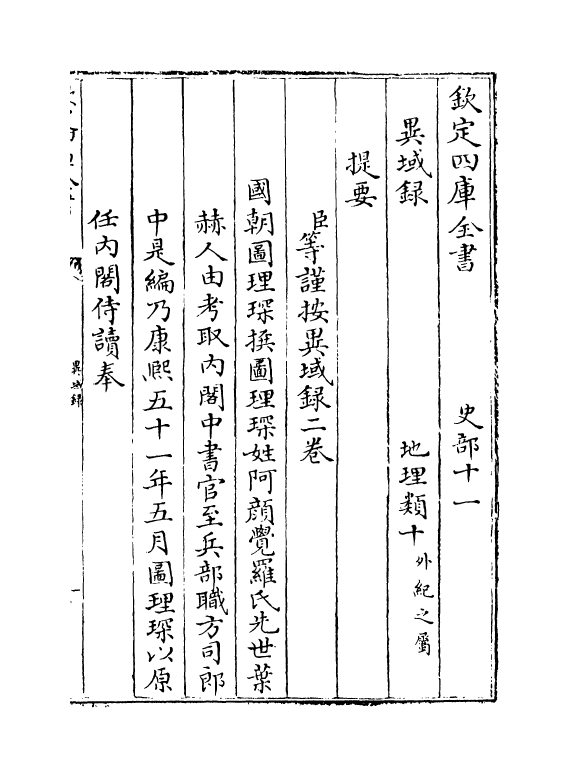 欽定四庫全書 史部十一
異域録 地理類十 外紀之屬
提要
臣等謹按異域録二卷
國朝圖理琛撰圖理琛姓阿顔覺羅氏先世葉
赫人由考取內閣中書官至兵部職方司郎
中是編乃康熙五十一年五月圖理琛以原
任內閣侍讀奉
異域録
一